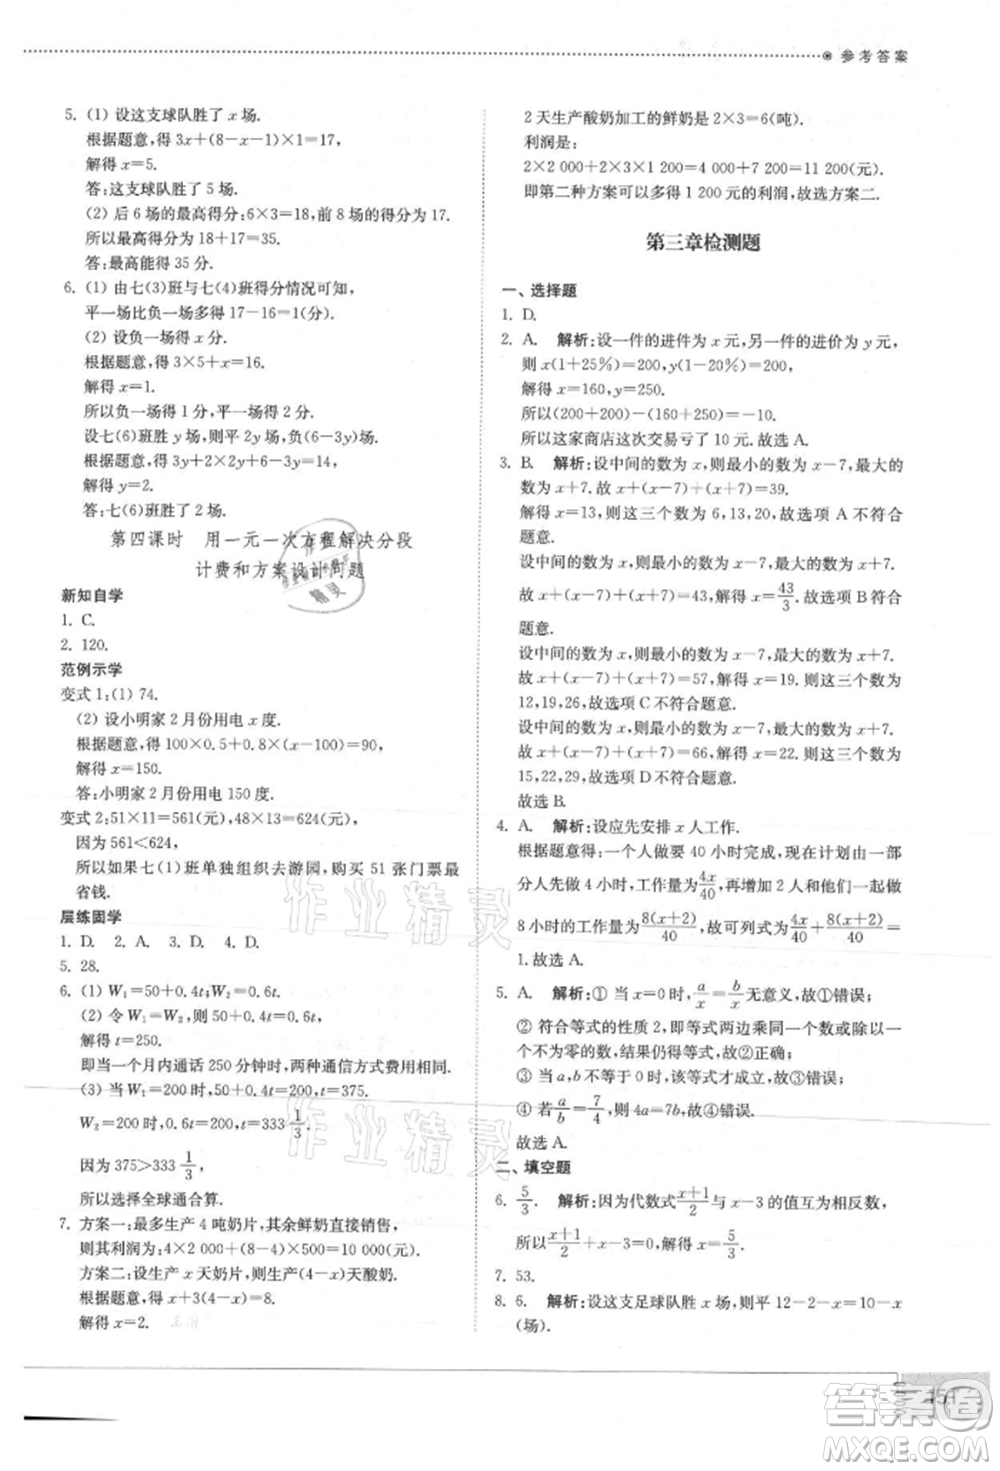 参考答案
5. (1) 设这支球队胜了 x 场.
根据题意,得 3x+(8-1-x)×1=17.
解得 x=5.
答:这支球队胜了 5 场.
(2) 后 6 场的最高得分:6×3=18,前 8 场得分为 17.
所以最高得分 18+17=35.
答:最高能得 35 分.
6. (1) 由七(3)班与七(4)班得分情况可知,
平一场比负一场多得 17-16=1(分).
(2) 设负一场得 x 分.
根据题意,得 3×5+x=16.
解得 x=1.
所以负一场得 1 分,平一场得 2 分.
设七(6)班胜 y 场,则平 2y 场,负(6-3y)场.
根据题意,得 3y+2×2y+6-3y=14.
解得 y=2.
答:七(6)班胜了 2 场.
第四课时 用一元一次方程解决分段
计费和方案设计问题
新知自学
1. C.
2. 120.
范例示学
变式 1:(1) 74.
(2) 设小明家 2 月份用电 x 度.
根据题意,得 100×0.5+0.8×(x-100)=90,
解得 x=150.
答:小明家 2 月份用电 150 度.
变式 2:51×11=561(元),48×13=624(元),
因为 561<624,
所以如果七(1)班单独组织去游园,购买 51 张门票最
省钱.
层练固学
1. D. 2. A. 3. D. 4. D.
5. 28.
6. (1) W₁=50+0.4t;W₂=0.6t.
(2) 令 W₁=W₂,则 50+0.4t=0.6t.
解得 t=250.
即当一个月内通话 250 分钟时,两种通信方式费用相同.
(3) 当 W₁=200 时,50+0.4t=200,t=375.
W₂=200 时,0.6t=200,t=333 1/3.
因为 375>333 1/3,
所以选择全球通合算.
7. 方案一:最多生产 4 吨奶片,其余鲜奶直接销售,
则其利润为:4×2 000+(8-4)×500=10 000(元).
方案二:设生产 x 天奶片,则生产(4-x)天酸奶.
根据题意,得 x+3(4-x)=8.
解得 x=2.
2 天生产酸奶加工的鲜奶是 2×3=6(吨).
利润是:
2×2 000+2×3×1 200=4 000+7 200=11 200(元).
即第二种方案可以多得 1 200 元的利润,故选方案二.
第三章检测题
一、选择题
1. D.
2. A. 解析:设一件的进件为 x 元,另一件的进价为 y 元,
则 x(1+25%)=200,y(1-20%)=200,
解得 x=160,y=250.
所以(200+200)-(160+250)=-10.
所以这家商店这次交易亏了 10 元.故选 A.
3. B. 解析:设中间的数为 x,则最小的数为 x-7,最大的
数为 x+7.故 x+(x-7)+(x+7)=39.
解得 x=13.故这三个数为 6,13,20,故选项 A 不符合
题意.
设中间的数为 x,则最小的数为 x-7,最大的数为 x+7.
故 x+(x-7)+(x+7)=43,解得 x=43/3.故选项 B 符合
题意.
设中间的数为 x,则最小的数为 x-7,最大的数为 x+7.
故 x+(x-7)+(x+7)=57,解得 x=19.故这三个数为
12,19,26,故选项 C 不符合题意.
设中间的数为 x,则最小的数为 x-7,最大的数为 x+7.
故 x+(x-7)+(x+7)=66,解得 x=22.故这三个数为
15,22,29,故选项 D 不符合题意.
故选 B.
4. A. 解析:设应先安排 x 人工作.
根据题意得:一个人做要 40 小时完成,现在计划由一部
分人先做 4 小时,工作量为 4x/40,再增加 2 人和他们一起做
8 小时的工作量为 8(x+2)/40,故可列式 4x/40+8(x+2)/40=
1.故选 A.
5. A. 解析:① 当 x=0 时,a/x=b/x 无意义,故①错误;
② 符合等式的性质 2,即等式两边乘同一个数或除以一
个不为零的数,结果仍得等式,故②正确;
③ 当 a,b 互为相反数时,该等式才成立,故③错误;
④ 若 a/b=7/4,则 4a=7b,故④错误.
故选 A.
二、填空题
6. 5/3. 解析:因为代数式 x+1/2 与 x-3 的值互为相反数,
所以 x+1/2+x-3=0,解得 x=5/3.
7. 53.
8. 6. 解析:设这支足球队胜 x 场,则平 12-2-x=10-x
(场).
作业精灵
作业精灵
答案圈
MXQE.COM